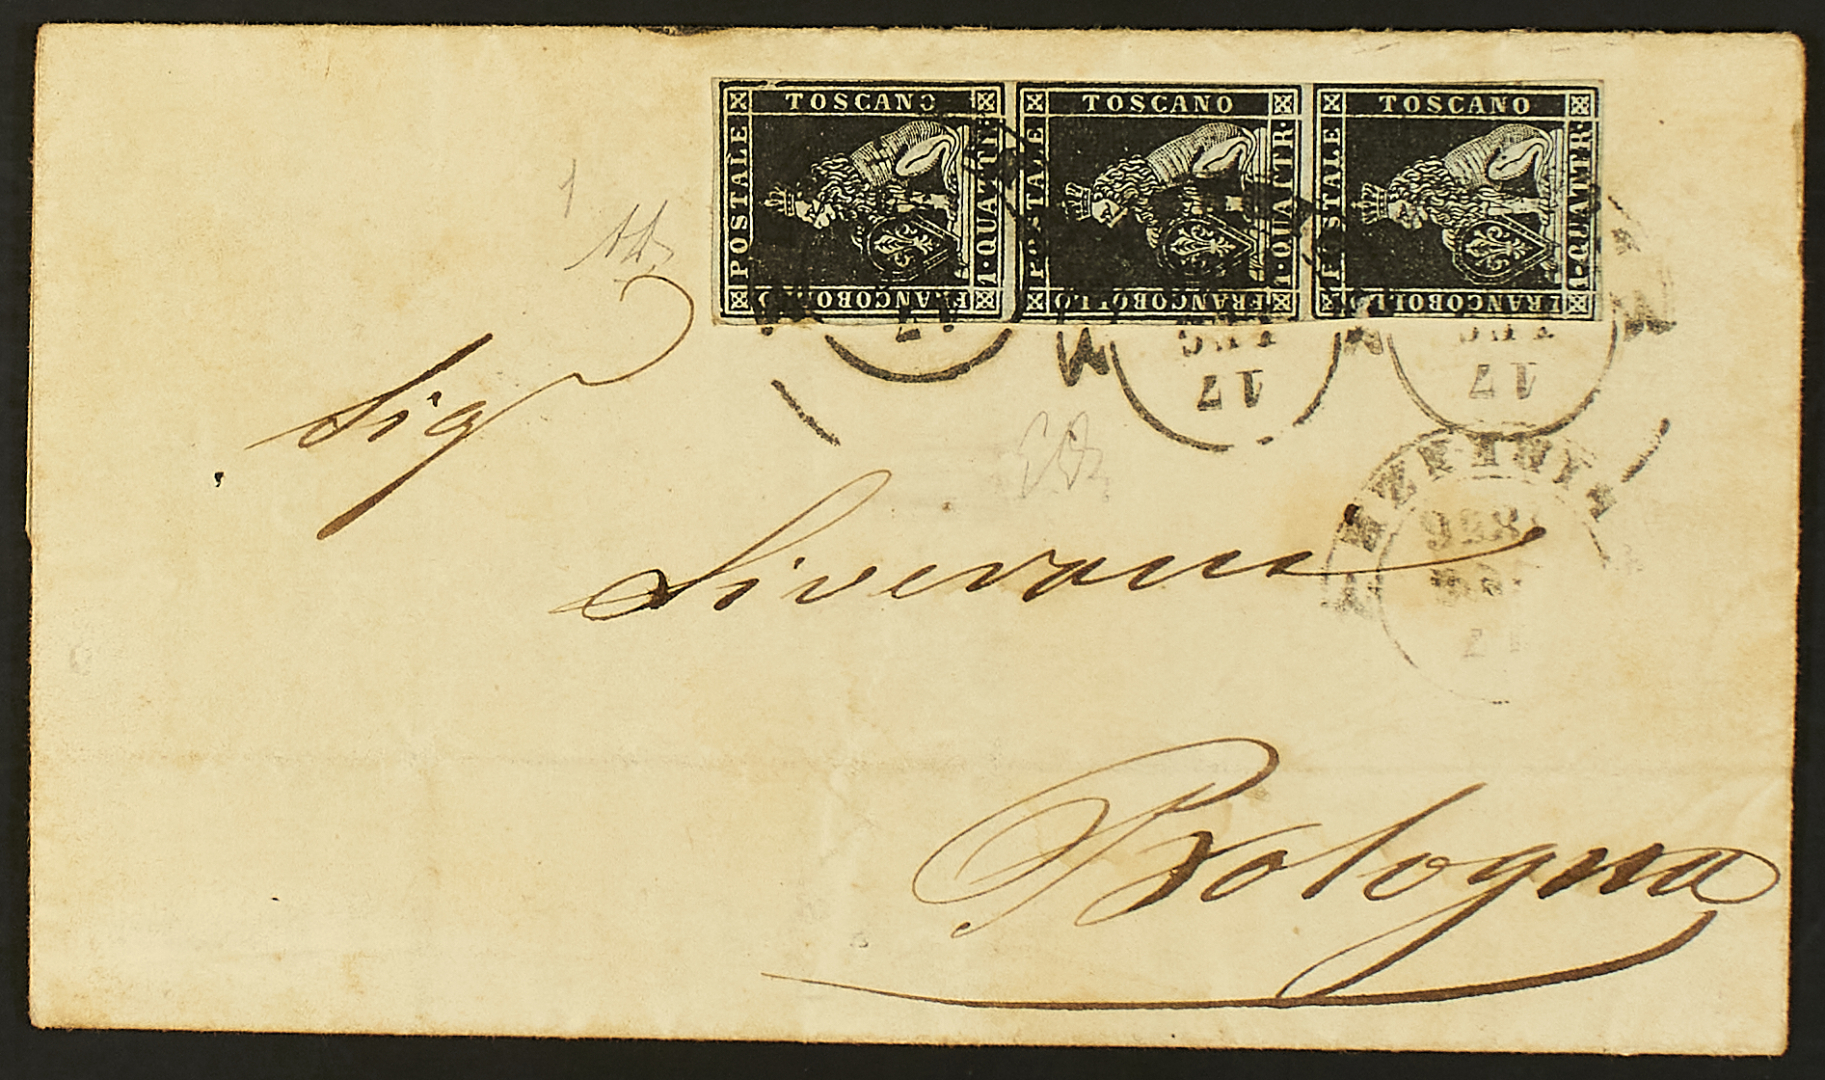 TOSCANO TOSCANO TOSCANO
POSTALE POSTALE POSTALE
1·QUATTR· 1·QUATTR· 1·QUATTR·
FRANCOBOLLO FRANCOBOLLO FRANCOBOLLO
17
LUG
17
LUG
17
Sig
Liverani
1856
17
Bologna